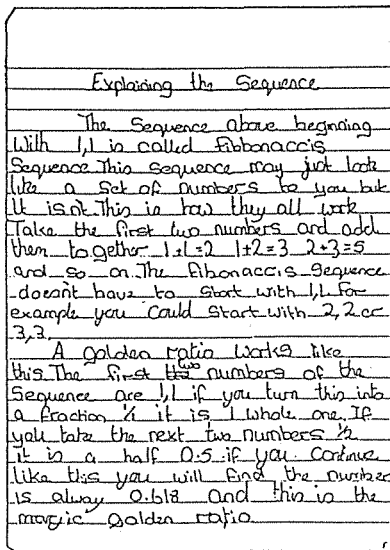 Explaining the Sequence
The Sequence above beginning
With 1,1 is called Fibbonaccis
Sequence This sequence may just look
like a set of numbers to you but
it isn't This is how they all work
Take the first two numbers and add
them to gether 1+1=2 1+2=3 2+3=5
and so on The fibonaccis Sequence
doesn't have to start with 1,1 for
example you could start with 2,2 or
3,3.
A golden ratio works like
this The first two numbers of the
Sequence are 1,1 if you turn this into
a fraction 1/1 it is 1 whole one If
you take the next two numbers 1/2
it is a half 0.5 if you continue
like this you will find the number
is alway 0.618 and this is the
magic golden ratio